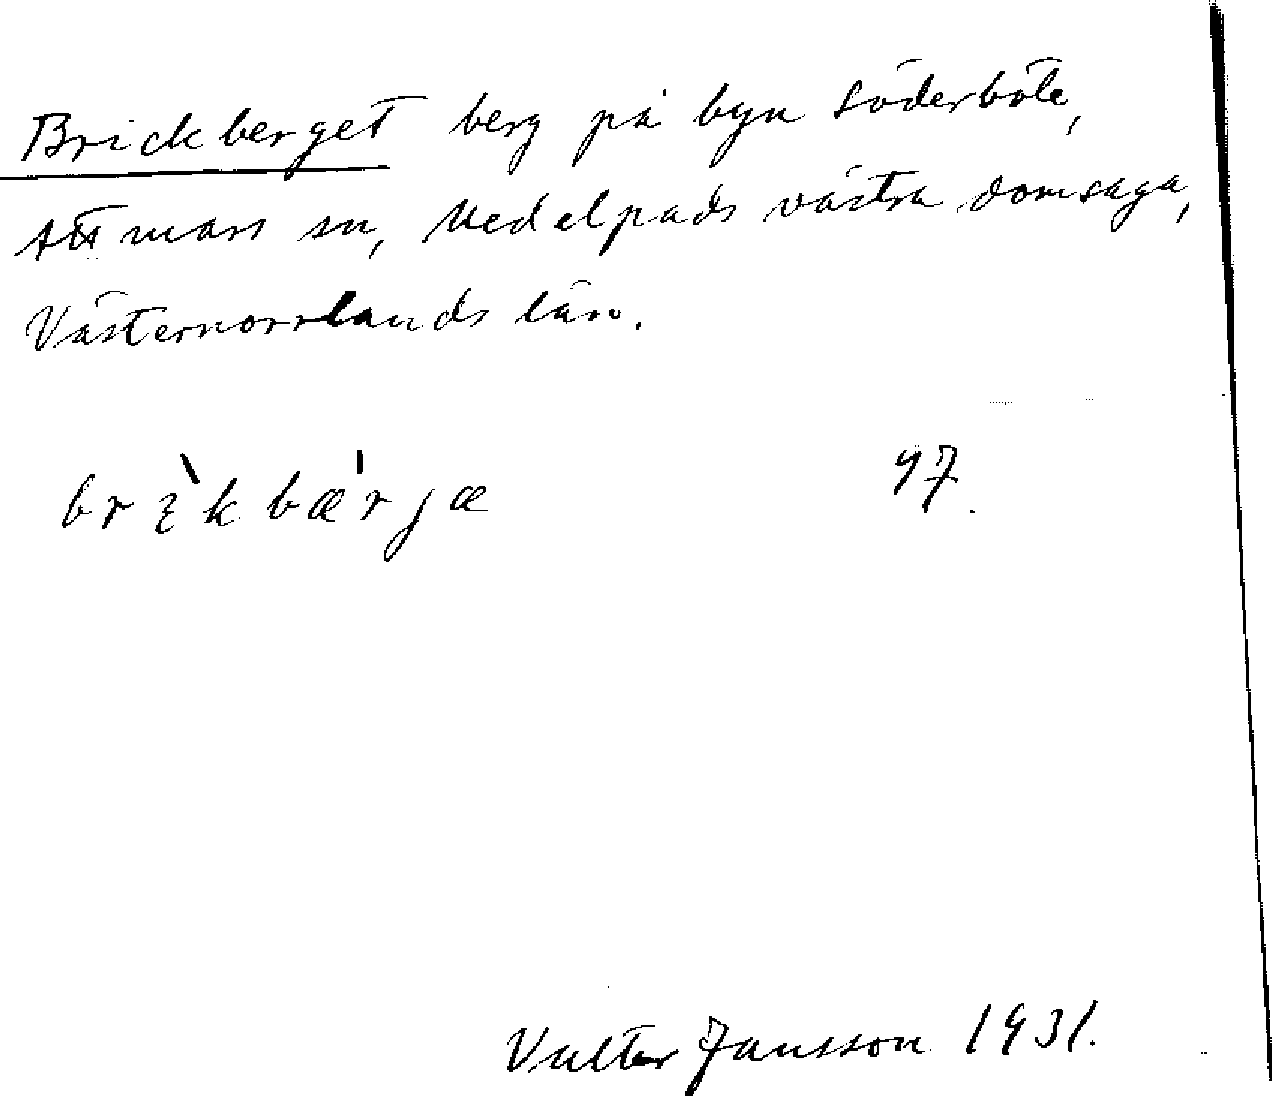 Brickberget berg på byn Söderböle,
Attmars sn, Medelpads västra domsaga,
Västernorrlands län.
brìkbæ'rjæ 97.
Valter Jansson 1931.